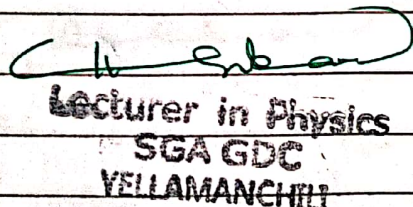 Lecturer in Physics
SGA GDC
YELLAMANCHILI